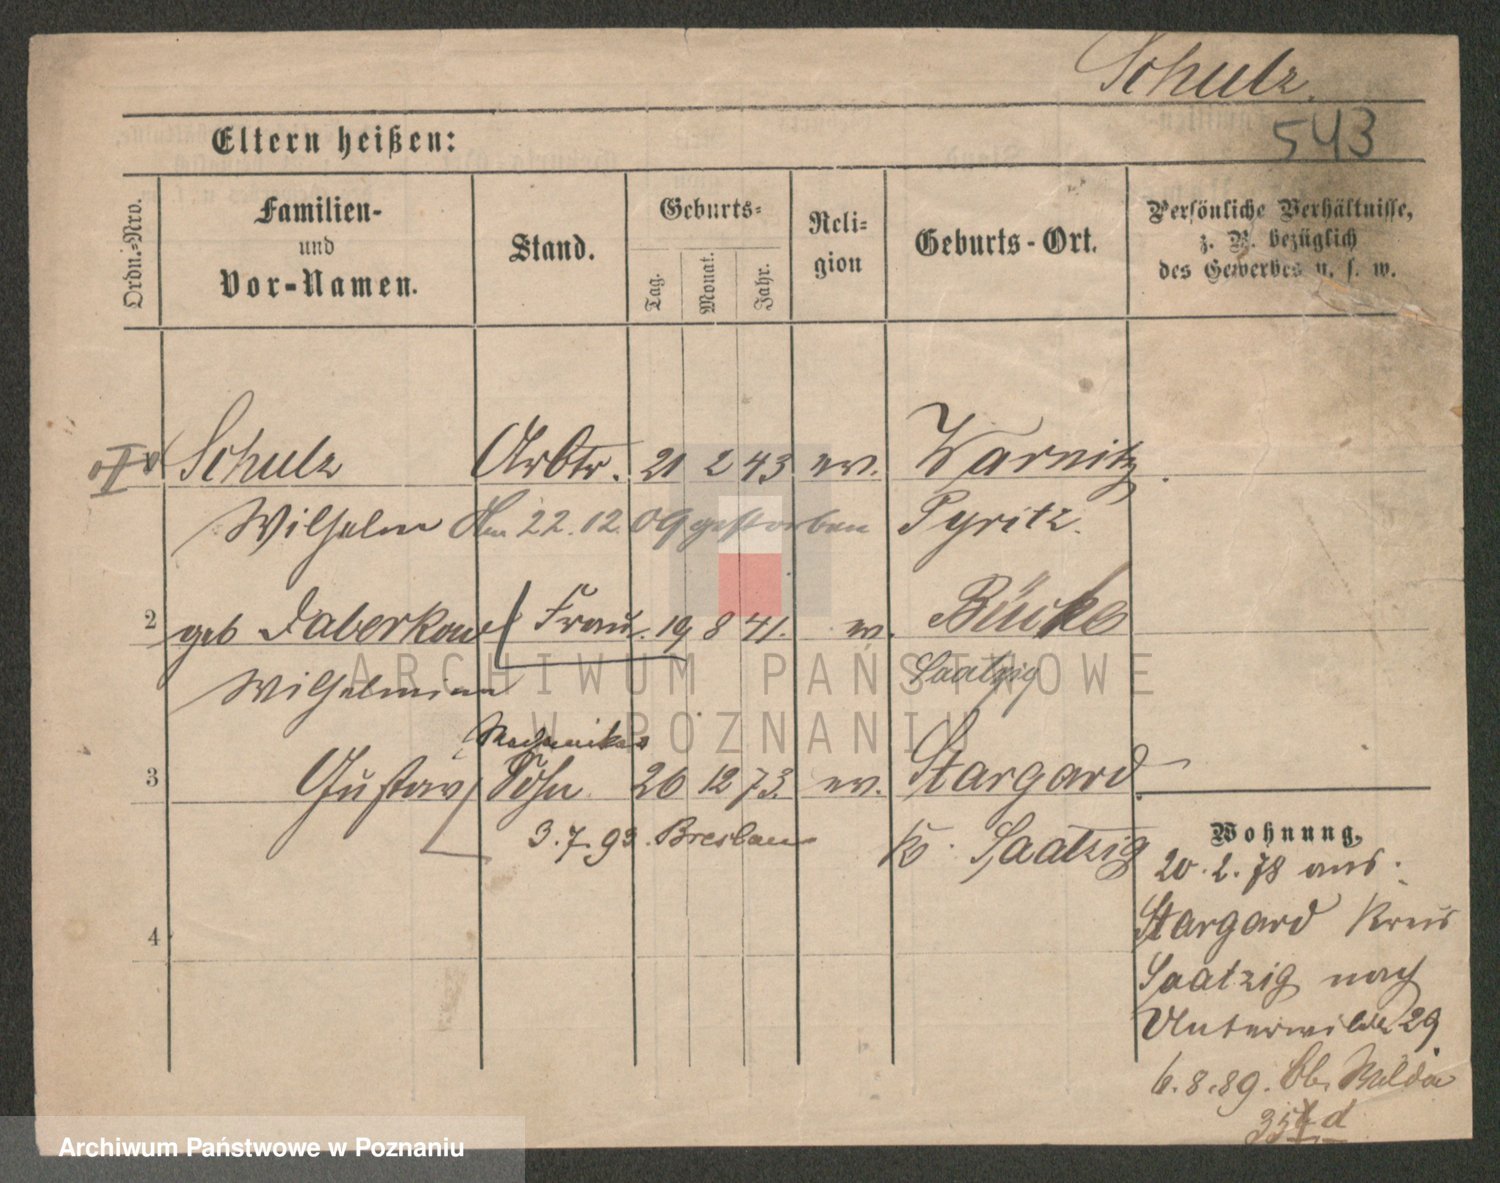 Schulz.
543
Eltern heißen:
Ordn.-Nro.
Familien-
und
Vor-Namen.
Stand.
Geburts-
Tag.
Monat.
Jahr.
Reli-
gion
Geburts-Ort.
Persönliche Verhältnisse,
z. B. bezüglich
des Gewerbes u. s. w.
Schulz Arbtr. 21 2 43 ev. Warnitz
Wilhelm Am 22.12.09 gestorben Pyritz.
2 geb Daberkow Frau. 19 8 41. ev.
Wilhelmine Saatzig
Mechaniker
3 Gustav Sohn 26 12 73. ev. Stargard
3.7.93. Breslau Kr. Saatzig
4
Wohnung,
20.2.78 aus
Stargard Kreis
Saatzig nach
Unterwilda 29.
6.8.89. Ob. Wilda
ARCHIWUM PAŃSTWOWE
W POZNANIU
Archiwum Państwowe w Poznaniu